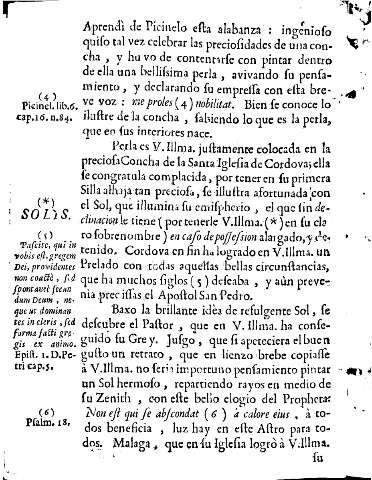 Aprendi de Picinelo esta alabanza : ingenioso
quiso tal vez celebrar las preciosidades de una con-
cha , y huvo de contentarse con pintar dentro
de ella una bellissima perla , avivando su pensa-
miento , y declarando su empressa con esta bre-
ve voz : me proles (4) nobilitat. Bien se conoce lo
ilustre de la concha , sabiendo lo que es la perla,
que en sus interiores nace.
(4)
Picinel. lib. 6.
cap. 16. n. 84.
Perla es V. Illma. justamente colocada en la
preciosa Concha de la Santa Iglesia de Cordova; ella
se congratula complacida, por tener en su primera
Silla alhaja tan preciosa, se ilustra afortunada con
el Sol, que illumina su emispherio , el que sin de-
clinacion le tiene (por tenerle V. Illma. (*) en su cla
ro sobrenombre) en caso de possession alargado, y de-
tenido. Cordova en fin ha logrado en V. Illma. un
Prelado con todas aquellas bellas circunstancias,
que ha muchos siglos (5) deseaba , y aùn preve-
nia precissas el Apostol San Pedro.
(*)
SOLIS.
(5)
Pascite, qui in
vobis est, gregem
Dei, providentes
non coactè , sed
spontaneè secun
dum Deum , ne-
que ut dominan
tes in cleris , sed
forma facti gre-
gis ex animo.
Epist. 1. D. Pe-
tri cap. 5.
Baxo la brillante idèa de refulgente Sol, se
descubre el Pastor , que en V. Illma. ha conse-
guido su Grey. Jusgo , que si apeteciera el buen
gusto un retrato , que en lienzo brebe copiasse
à V. Illma. no seria importuno pensamiento pintar
un Sol hermoso , repartiendo rayos en medio de
su Zenith , con este bello elogio del Propheta:
Non est qui se abscondat (6) à calore eius , à to-
dos beneficia , luz hay en este Astro para to-
dos. Malaga , que en su Iglesia logrò à V. Illma.
(6)
Psalm. 18.
su